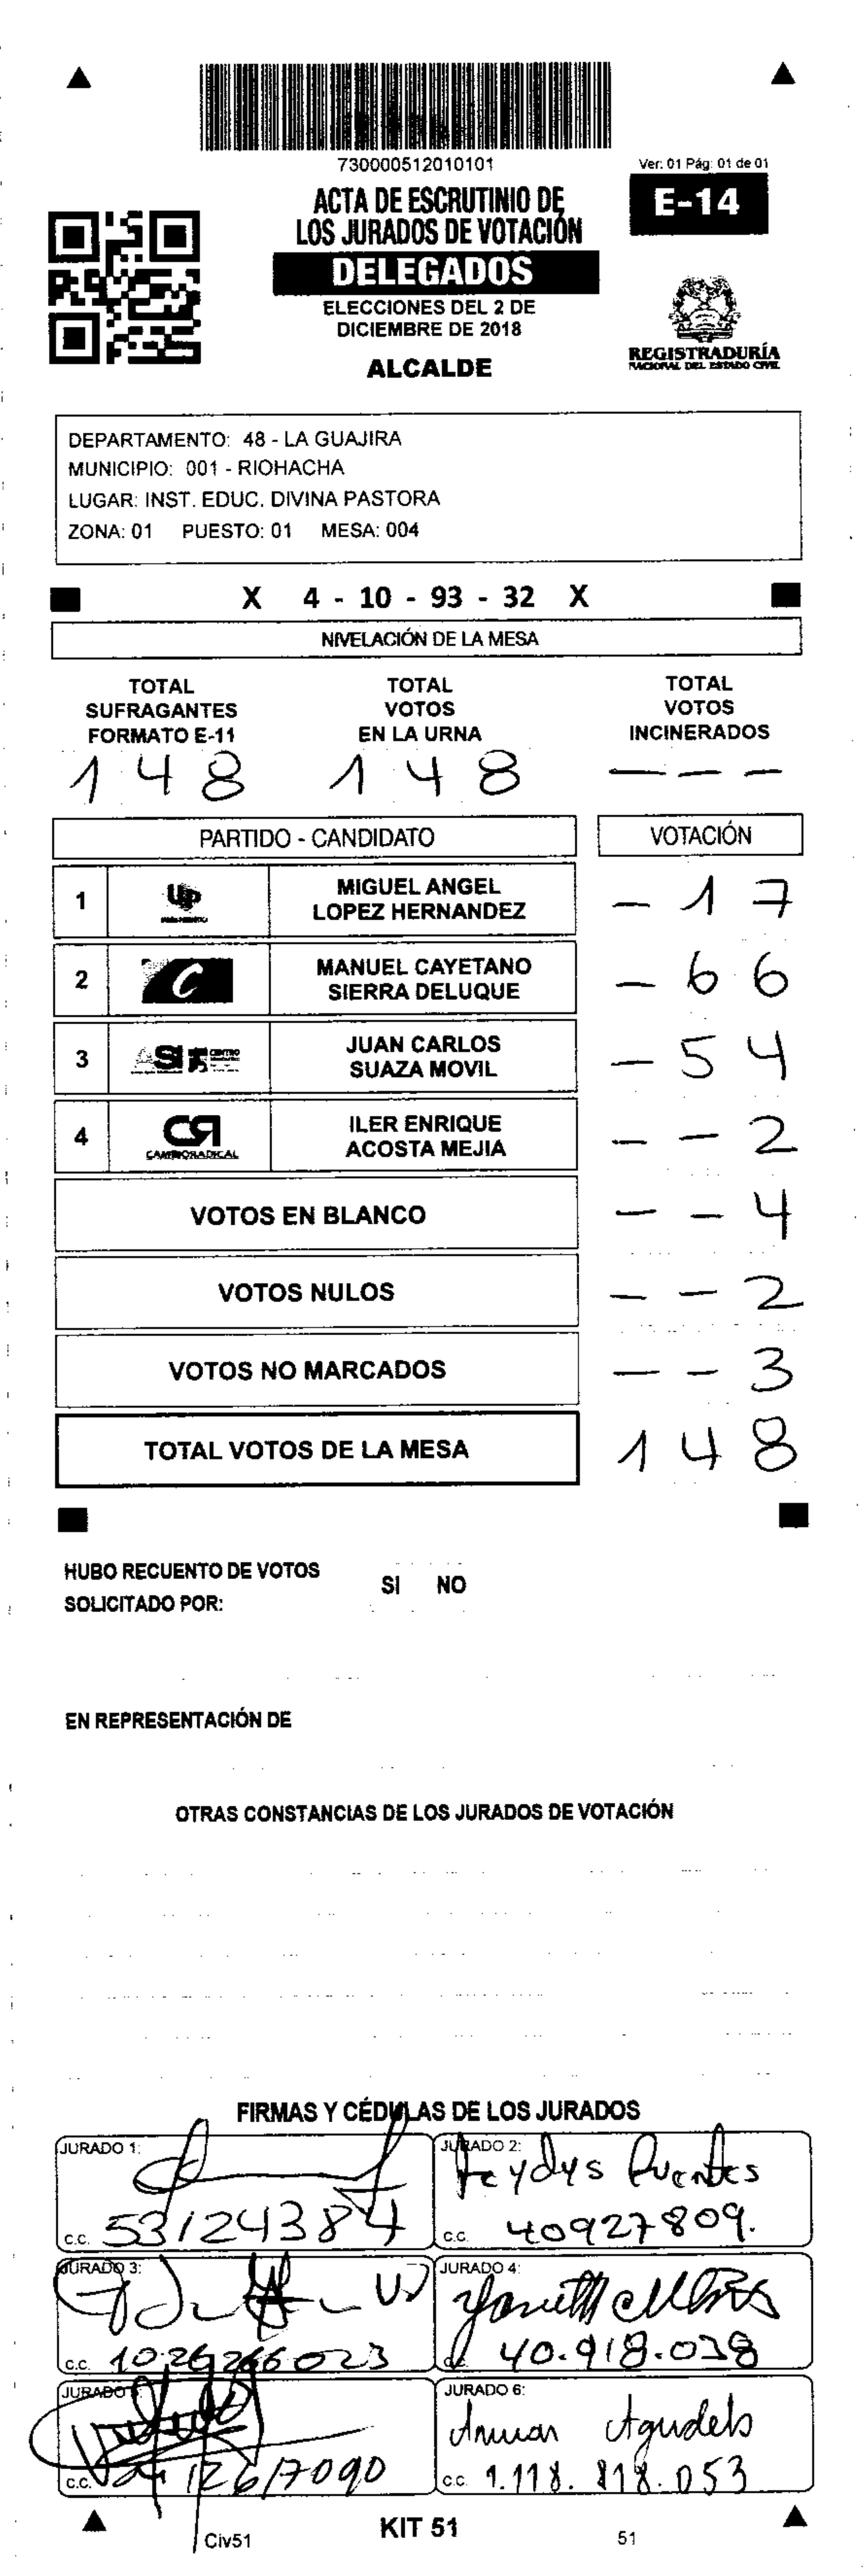 730000512010101
Ver: 01 Pág: 01 de 01
ACTA DE ESCRUTINIO DE
LOS JURADOS DE VOTACIÓN
E-14
DELEGADOS
ELECCIONES DEL 2 DE
DICIEMBRE DE 2018
ALCALDE
REGISTRADURÍA
NACIONAL DEL ESTADO CIVIL
DEPARTAMENTO: 48 - LA GUAJIRA
MUNICIPIO: 001 - RIOHACHA
LUGAR: INST. EDUC. DIVINA PASTORA
ZONA: 01 PUESTO: 01 MESA: 004
X 4 - 10 - 93 - 32 X
NIVELACIÓN DE LA MESA
TOTAL SUFRAGANTES FORMATO E-11
148
TOTAL VOTOS EN LA URNA
148
TOTAL VOTOS INCINERADOS
- - -
PARTIDO - CANDIDATO VOTACIÓN
1 UP MIGUEL ANGEL LOPEZ HERNANDEZ - 1 7
2 C MANUEL CAYETANO SIERRA DELUQUE - 6 6
3 ASI CENTRO JUAN CARLOS SUAZA MOVIL - 5 4
4 CR CAMBIO RADICAL ILER ENRIQUE ACOSTA MEJIA - - 2
VOTOS EN BLANCO - - 4
VOTOS NULOS - - 2
VOTOS NO MARCADOS - - 3
TOTAL VOTOS DE LA MESA 1 4 8
HUBO RECUENTO DE VOTOS SI NO
SOLICITADO POR:
EN REPRESENTACIÓN DE
OTRAS CONSTANCIAS DE LOS JURADOS DE VOTACIÓN
FIRMAS Y CÉDULAS DE LOS JURADOS
JURADO 1:
c.c. 53124384
JURADO 2: Leydys Puentes
c.c. 40927809.
JURADO 3:
c.c. 1026266023
JURADO 4:
40.918.038
JURADO
c.c.
JURADO 6: Anuar Agudelo
c.c. 1.118.818.053
KIT 51
Civ51
51